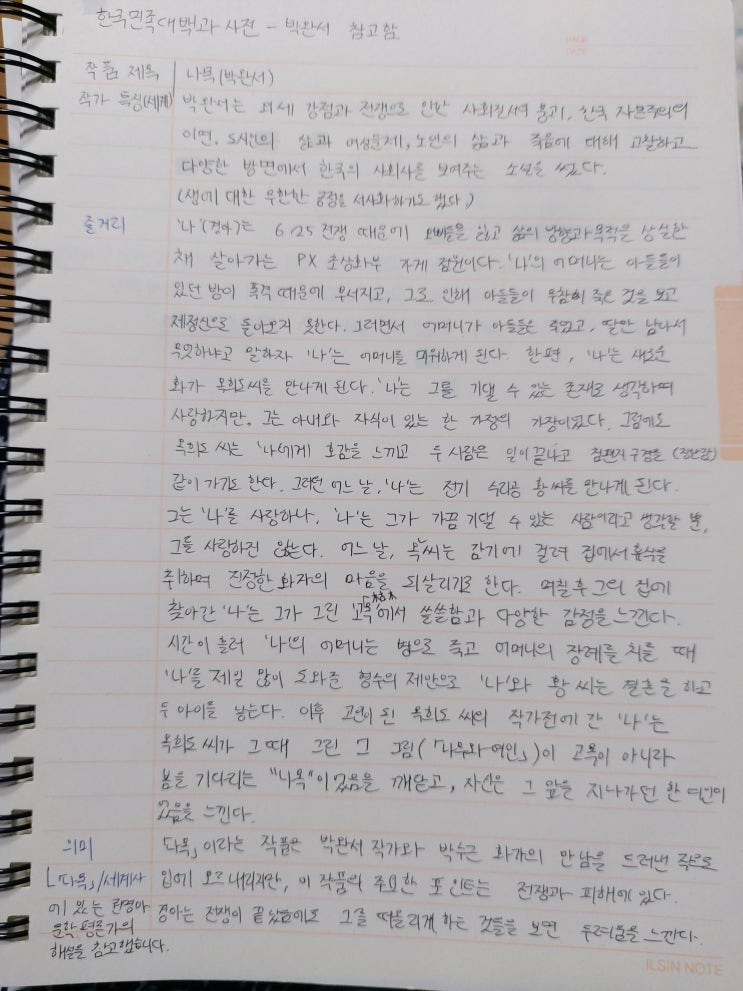 한국민족대백과 사전 - 박완서 참고함
작품 제목 나목(박완서)
작가 특징(세계) 박완서는 외세 강점과 전쟁으로 인한 사회질서의 붕괴, 한국 자본주의의
이면, 도시인의 삶과 여성문제, 노인의 삶과 죽음에 대해 고찰하고
다양한 방면에서 한국의 사회사를 보여주는 소설을 썼다.
(생에 대한 무한한 긍정을 서사화하기도 했다.)
줄거리 '나'(경아)는 6.25 전쟁 때문에 오빠들을 잃고 삶의 방향과 목적을 상실한
채 살아가는 PX 초상화부 가게 점원이다. '나'의 어머니는 아들들이
있던 방이 폭격 때문에 부서지고, 그로 인해 아들들이 무참히 죽은 것을 보고
제정신으로 돌아오지 못한다. 그러면서 어머니가 아들들은 죽었고, 딸만 남아서
무엇하냐고 말하자 '나'는 어머니를 미워하게 된다. 한편, '나'는 새로운
화가 옥희도씨를 만나게 된다. '나'는 그를 기댈 수 있는 존재로 생각하며
사랑하지만, 그는 아내와 자식이 있는 한 가정의 가장이었다. 그럼에도
옥희도 씨는 '나'에게 호감을 느끼고 두 사람은 일이 끝나고 침팬지 구경을 (장난감)
같이 가기도 한다. 그러던 어느 날, '나'는 전기 수리공 황 씨를 만나게 된다.
그는 '나'를 사랑하나, '나'는 그가 가끔 기댈 수 있는 사람이라고 생각할 뿐,
그를 사랑하진 않는다. 어느 날, 옥씨는 감기에 걸려 집에서 휴식을
취하며 진정한 화자의 마음을 되살리기로 한다. 며칠 후 그의 집에
찾아간 '나'는 그가 그린 '고목'枯木에서 쓸쓸함과 다양한 감정을 느낀다.
시간이 흘러 '나'의 어머니는 병으로 죽고 어머니의 장례를 치를 때
'나'를 제일 많이 도와준 형수의 제안으로 '나'와 황 씨는 결혼을 하고
두 아이를 낳는다. 이후 고인이 된 옥희도 씨의 작가전에 간 '나'는
옥희도 씨가 그때 그린 그 그림(「나무와 여인」)이 고목이 아니라
봄을 기다리는 "나목"이었음을 깨닫고, 자신은 그 앞을 지나가던 한 여인이
었음을 느낀다.
의미 「나목」이라는 작품은 박완서 작가와 박수근 화가의 만남을 드러낸 작으로
「나목」/세계사 입에 오르내리지만, 이 작품의 주요한 포인트는 전쟁과 피해에 있다.
에 있는 경아는 전쟁이 끝났음에도 그를 떠올리게 하는 것들을 보면 두려움을 느낀다.
문학평론가의
해설을 참고했습니다.
ILSIN NOTE